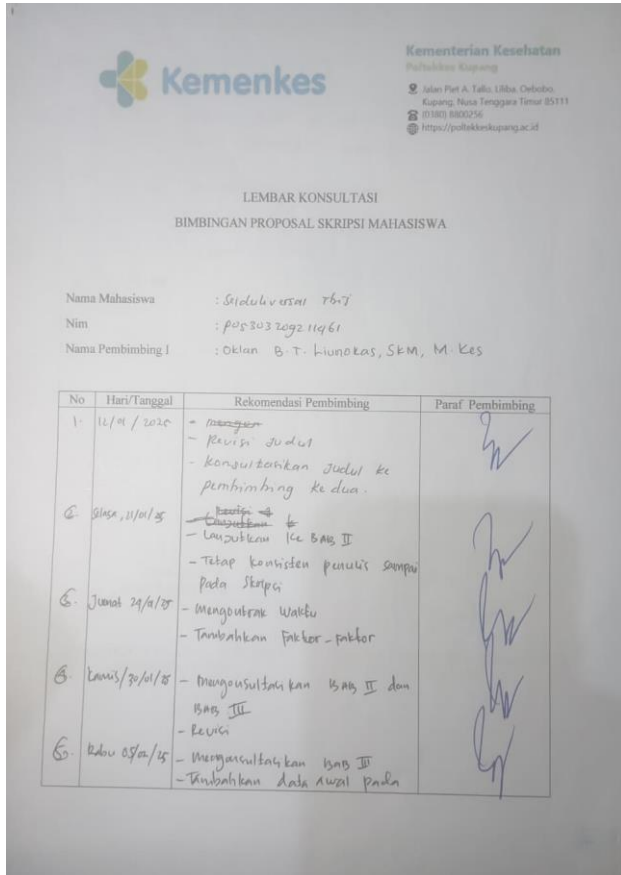 Kemenkes
Kementerian Kesehatan
Poltekkes Kupang
Jalan Piet A. Tallo, Liliba, Oebobo,
Kupang, Nusa Tenggara Timur 85111
(0380) 8800256
https://poltekkeskupang.ac.id
LEMBAR KONSULTASI
BIMBINGAN PROPOSAL SKRIPSI MAHASISWA
Nama Mahasiswa :
Nim :
Nama Pembimbing I : Oklan B.T. Liunokas, SKM, M.Kes
No Hari/Tanggal Rekomendasi Pembimbing Paraf Pembimbing
1. /2025
- Revisi Judul
- Konsultasikan Judul ke
pembimbing ke dua.
Selasa, 21/01/25
- Lanjutkan ke BAB II
- Tetap konsisten penulis sampai
pada Skripsi
Jumat 24/01/25 - Mengontrak Waktu
- Tambahkan Faktor-faktor
Kamis/30/01/25 - Mengonsultasikan BAB II dan
BAB III
- Revisi
Rabu 05/02/25 - Mengonsultasikan BAB III
- Tambahkan data awal pada